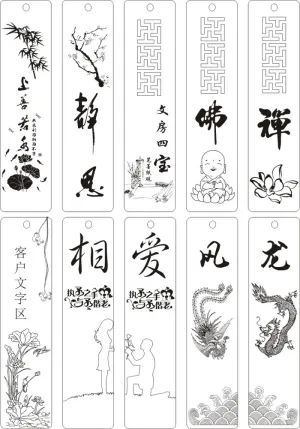 上善若水
静思
文房四宝
笔墨纸砚
佛
禅
客户文字区
相
执子之手
与子偕老
爱
执子之手
与子偕老
风
龙